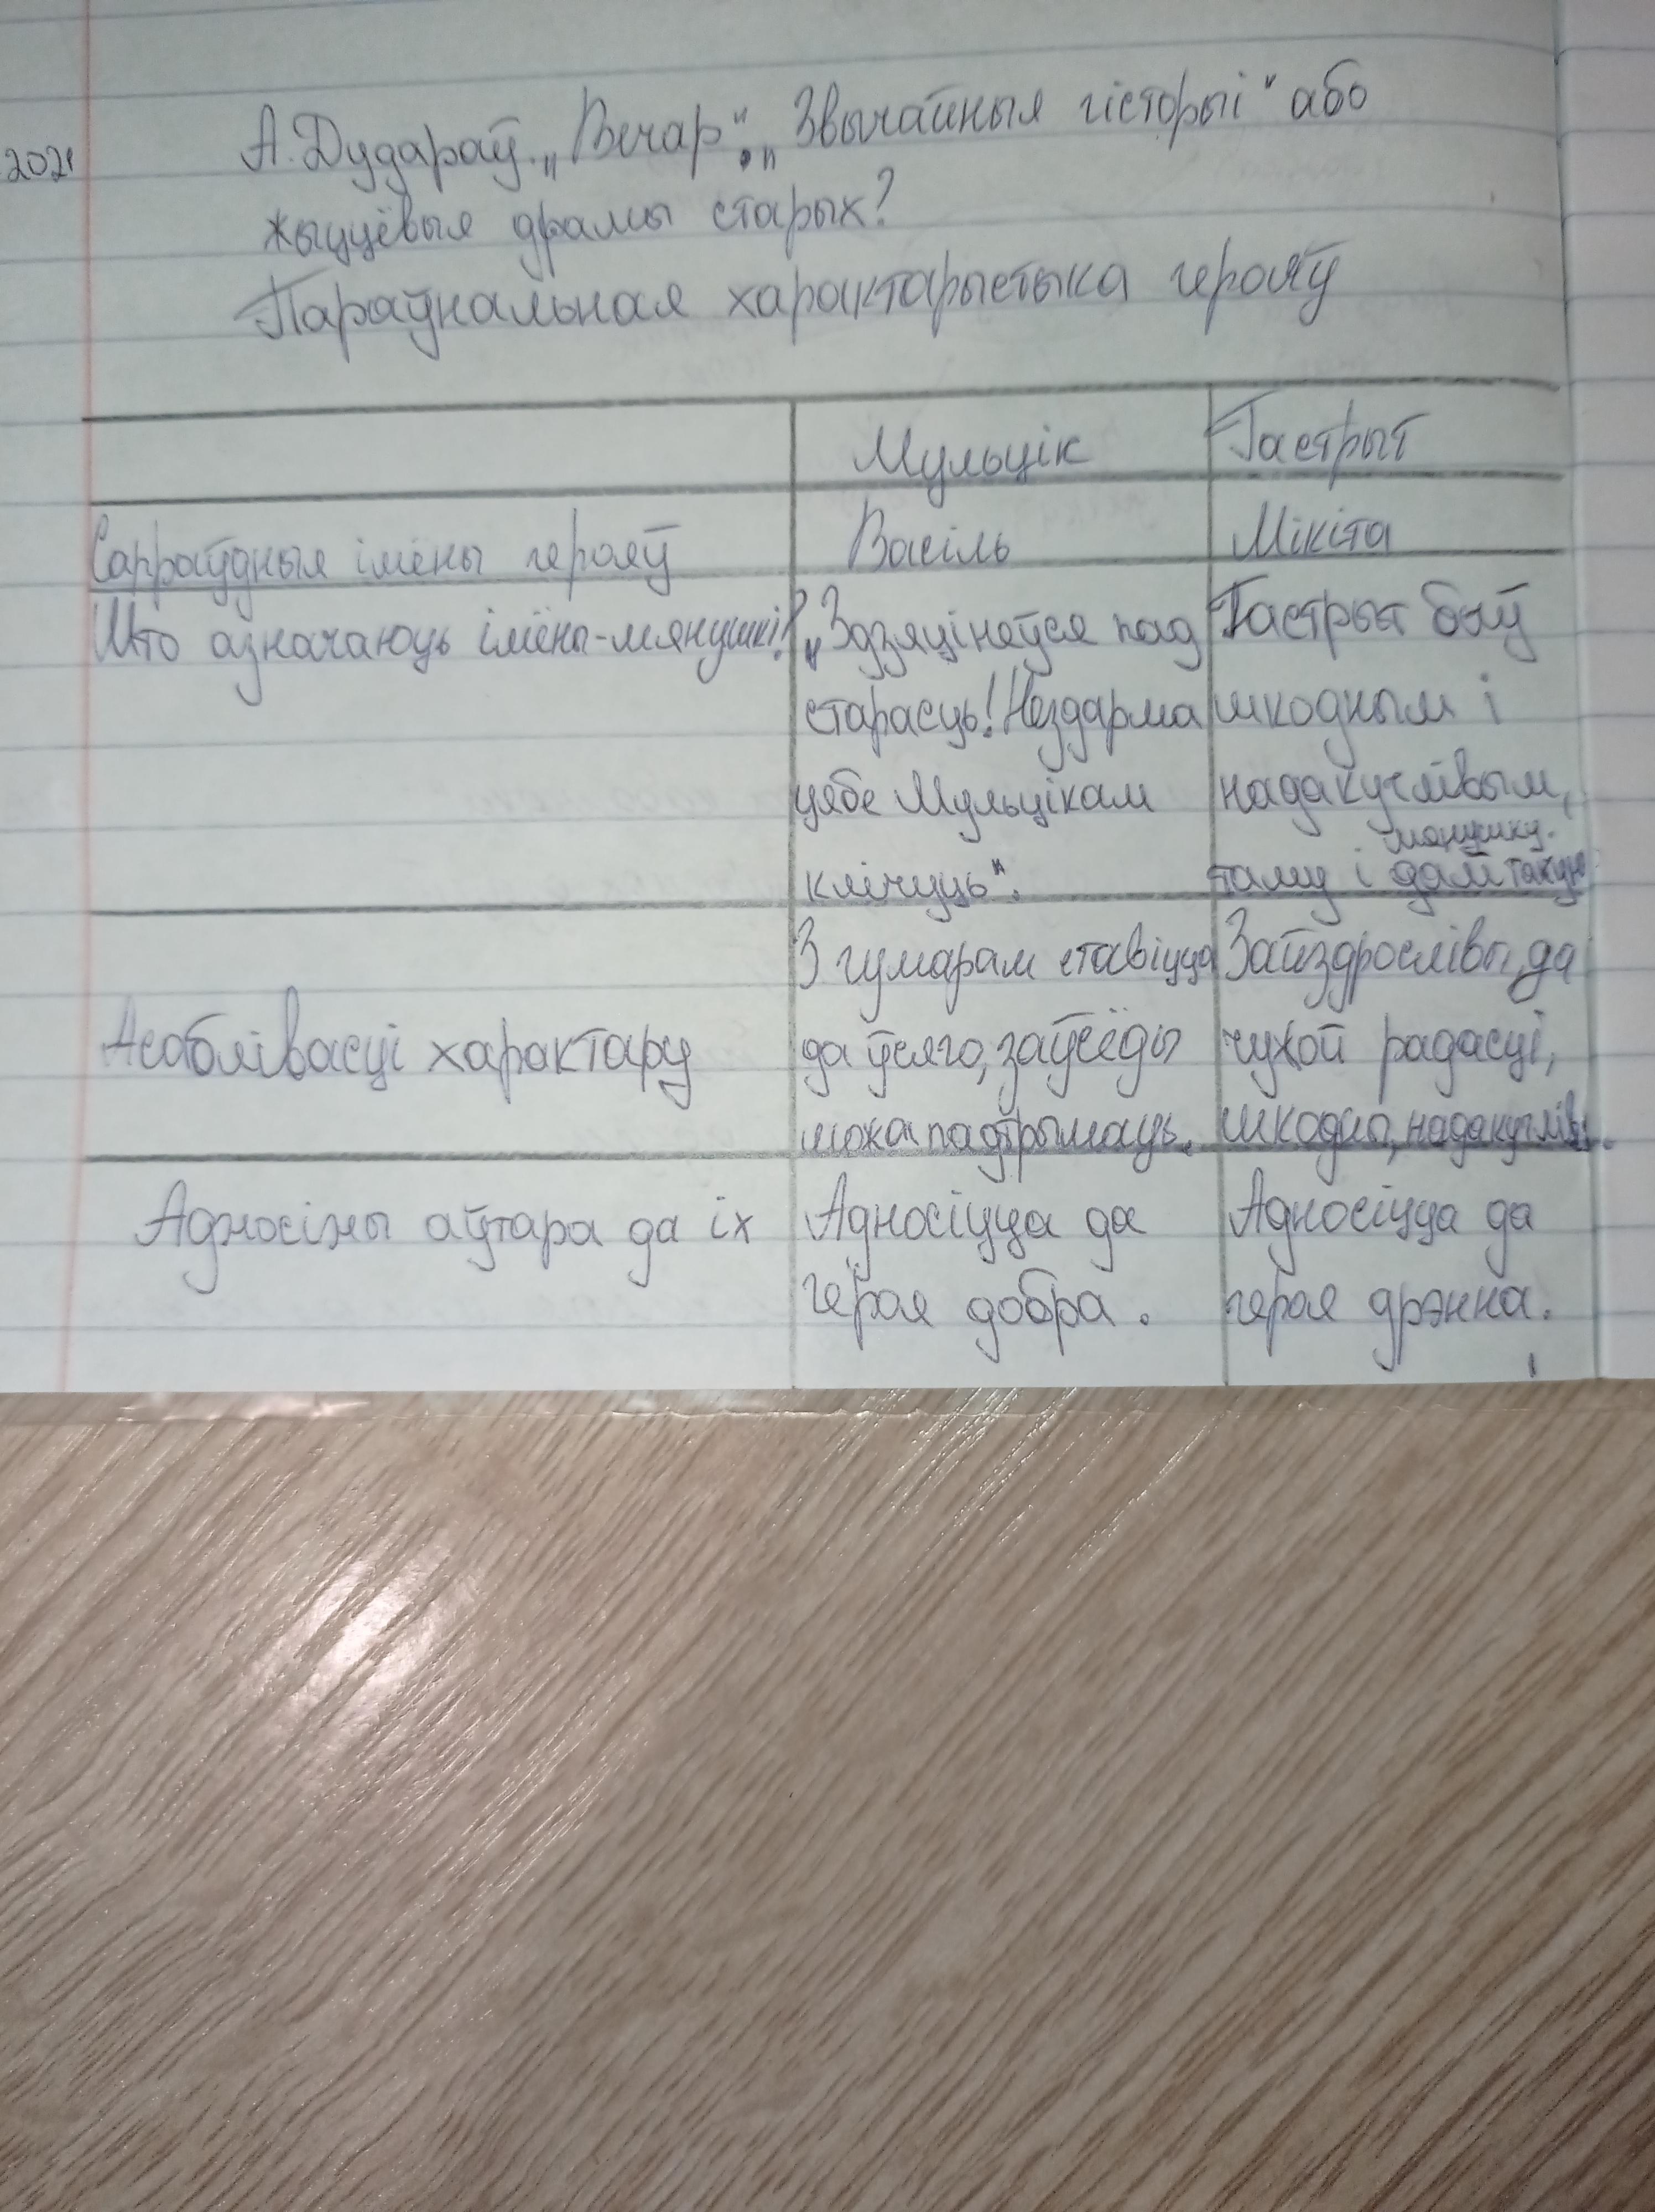 2021
А. Дудараў. „Вечар“. „Звычайныя гісторыі“ або
жыццёвыя драмы старых?
Параўнальная характарыстыка герояў
Мульцік Гастрыт
Сапраўдныя імёны герояў Васіль Мікіта
Што азначаюць імёны-мянушкі? „Здзяцінеўся пад Гастрыт быў
старасць! Нездарма шкодным і
цябе Мульцікам надакучлівым,
мянушку.
клічуць“. таму і далі такую
З гумарам ставіцца Зайздрослівы, да
Асаблівасці характару да ўсяго, заўсёды чужой радасці,
можа падтрымаць. шкодны, надакучлівы.
Адносіны аўтара да іх Адносіцца да Адносіцца да
героя добра. героя дрэнна.